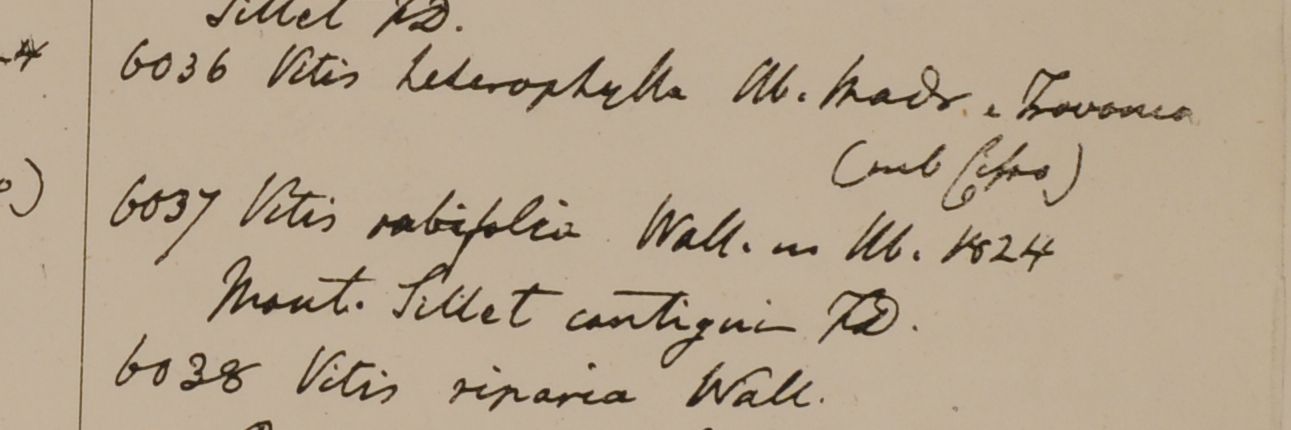 Sillet FD.
4
6036 Vitis heterophylla Hb. Madr. e Travanco
(sub Cisso)
o)
6037 Vitis rubifolia Wall. in Hb. 1824
Mont. Sillet contiguis FD.
6038 Vitis riparia Wall.